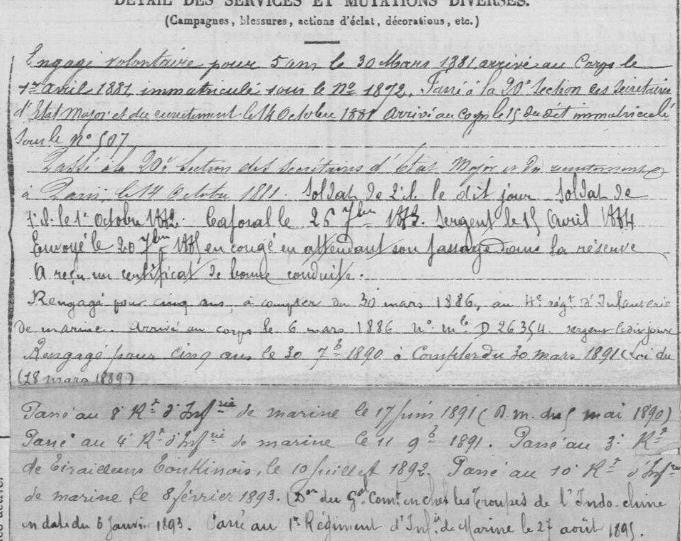 DÉTAIL DES SERVICES ET MUTATIONS DIVERSES.
(Campagnes, blessures, actions d'éclat, décorations, etc.)
Engagé volontaire pour 5 ans le 30 Mars 1881 arrivé au Corps le
1er avril 1881, immatriculé sous le No 1872. Passé à la 20e Section des Secrétaires
d'Etat Major et du recrutement le 14 Octobre 1881 Arrivé au corps le 15 du dit immatriculé
sous le n° 507
Passé à la 20e Section des secrétaires d'Etat Major et du recrutement
à Paris, le 14 Octobre 1881. Soldat de 2e cl. le dit jour. Soldat de
1e cl. le 1er Octobre 1882. Caporal le 26 7bre 1883. Sergent le 15 Avril 1884
Envoyé le 20 7bre 1885 en congé en attendant son passage dans la réserve
A reçu un certificat de bonne conduite.
Rengagé pour cinq ans, à compter du 30 mars 1886, au 4e régt d'Infanterie
de marine. Arrivé au corps le 6 mars 1886. no mle D 26354. sergent le dit jour
Rengagé pour cinq ans le 30 7b 1890 à Compter du 30 mars 1891 (Loi du
(18 mars 1889)
Passé au 8e Rt d'Infrie de marine le 17 juin 1891 (D.m. du 5 mai 1890)
Passé au 4e Rt d'Infrie de marine le 11 9b 1891. Passé au 3e Rt
de Tirailleurs Tonkinois, le 10 juillet 1892. Passé au 10e Rt d'Infrie
de marine le 8 février 1893. (Don du Gal Comt en chef les Troupes de l'Indo-chine
en date du 6 Janvier 1893. Passé au 1er Régiment d'Infie de Marine le 27 août 1895.